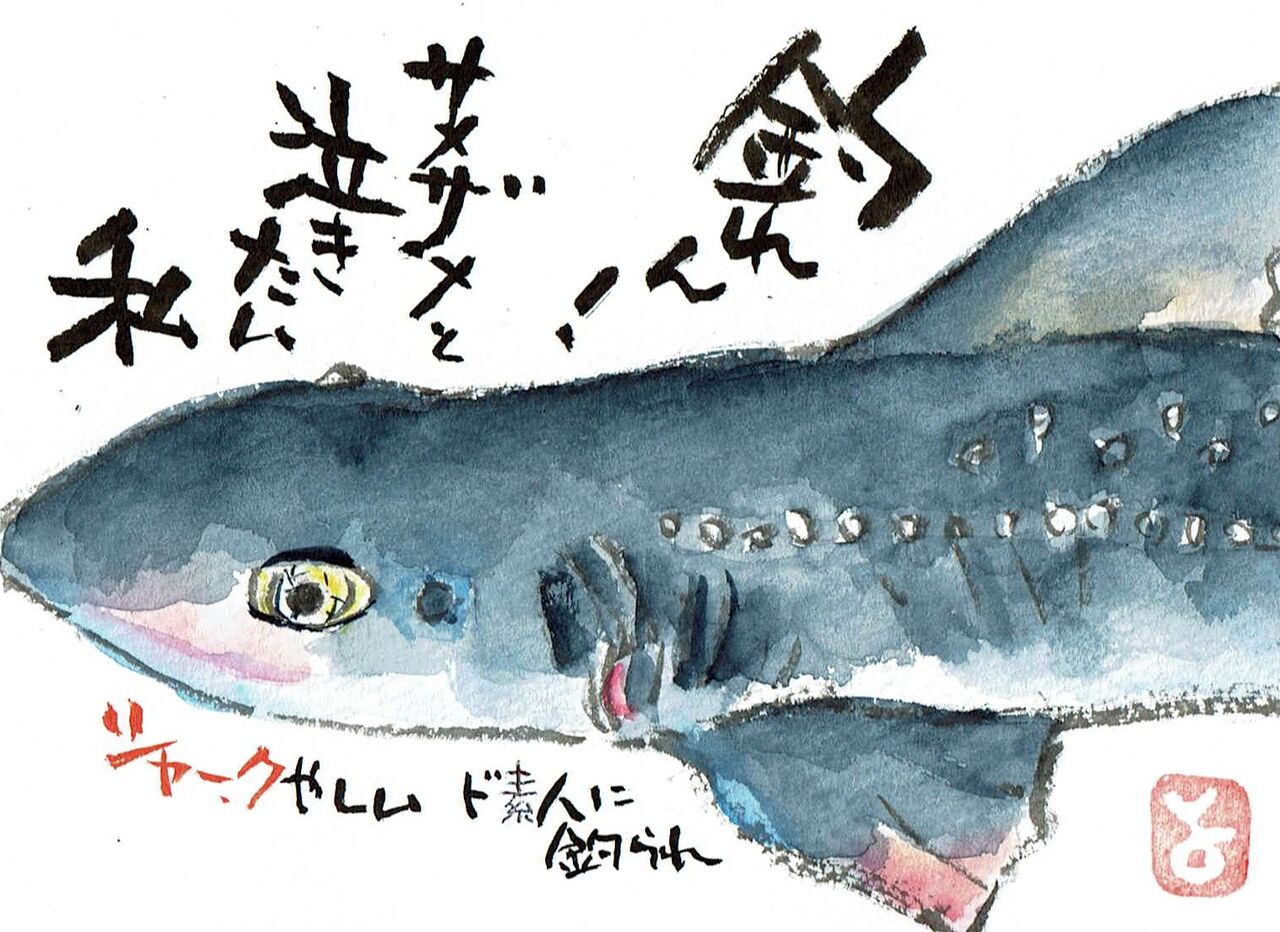 釣れ
ん!
サメザメと
泣きたい
私
シャークやしい ド素人に
釣られ